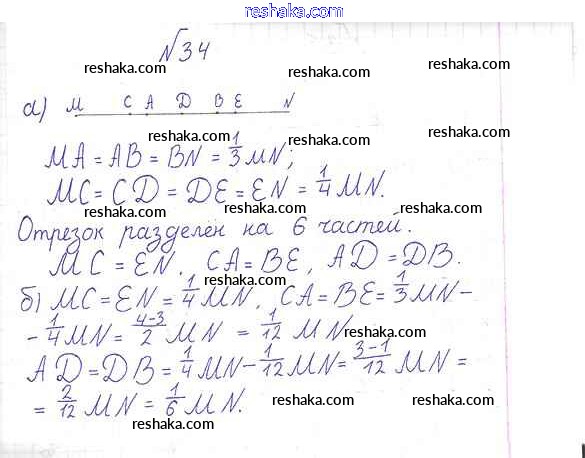 reshaka.com
№34
reshaka.com reshaka.com
а) M C A D B E N
reshaka.com
MA = AB = BN = 1/3 MN;
reshaka.com reshaka.com
MC = CD = DE = EN = 1/4 MN.
reshaka.com reshaka.com
Отрезок разделен на 6 частей.
reshaka.com
MC = EN, CA = BE, AD = DB.
reshaka.com
б) MC = EN = 1/4 MN, CA = BE = 1/3 MN -
- 1/4 MN = 4-3/2 MN = 1/12 MN
reshaka.com reshaka.com
AD = DB = 1/4 MN - 1/12 MN = 3-1/12 MN =
reshaka.com
= 2/12 MN = 1/6 MN.
reshaka.com reshaka.com
reshaka.com